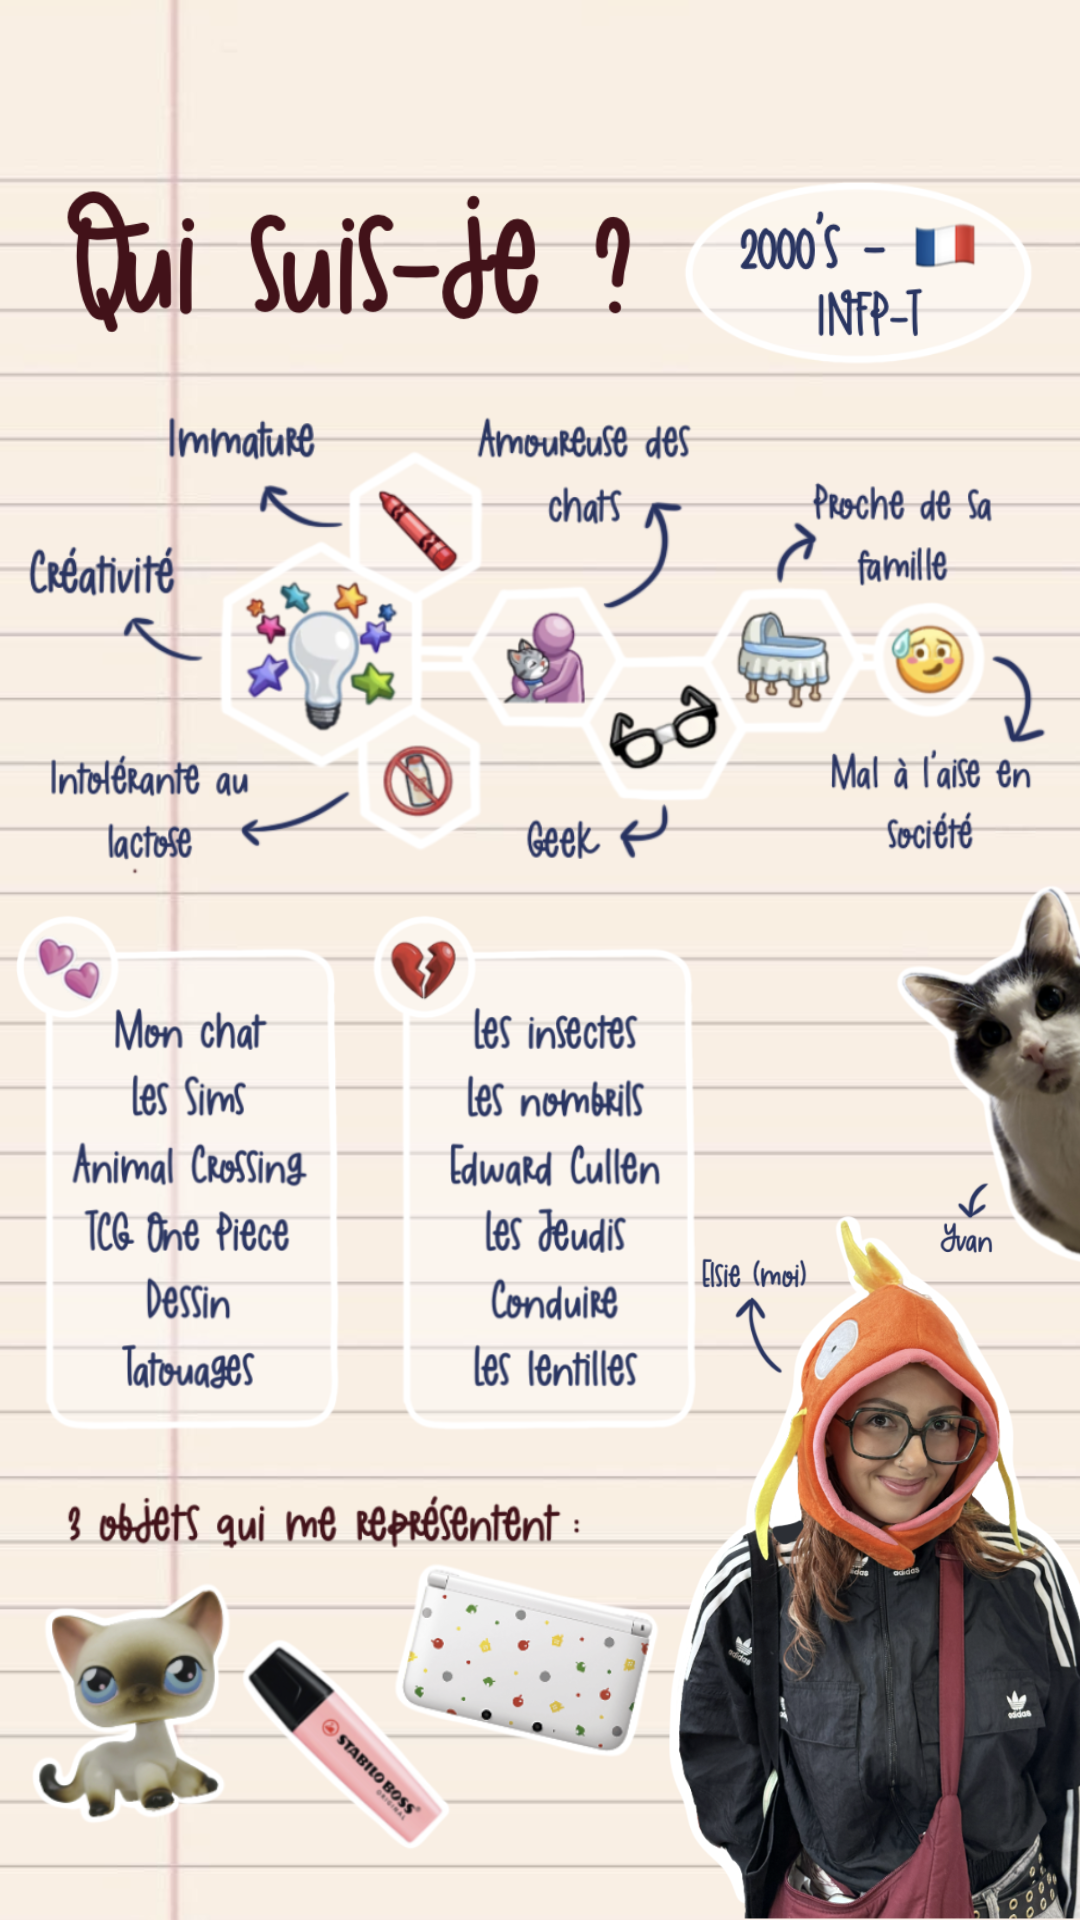 Qui suis-je ?
2000's - 🇫🇷
INFP-T
Immature
Amoureuse des
chats
Proche de sa
famille
Créativité
Intolérante au
lactose
Geek
Mal à l'aise en
société
Mon chat
Les Sims
Animal Crossing
TCG One Piece
Dessin
Tatouages
Les insectes
Les nombrils
Edward Cullen
Les Jeudis
Conduire
Les lentilles
Yvan
Elsie (moi)
3 objets qui me représentent :
STABILO BOSS
ORIGINAL
adidas
adidas
adidas
adidas